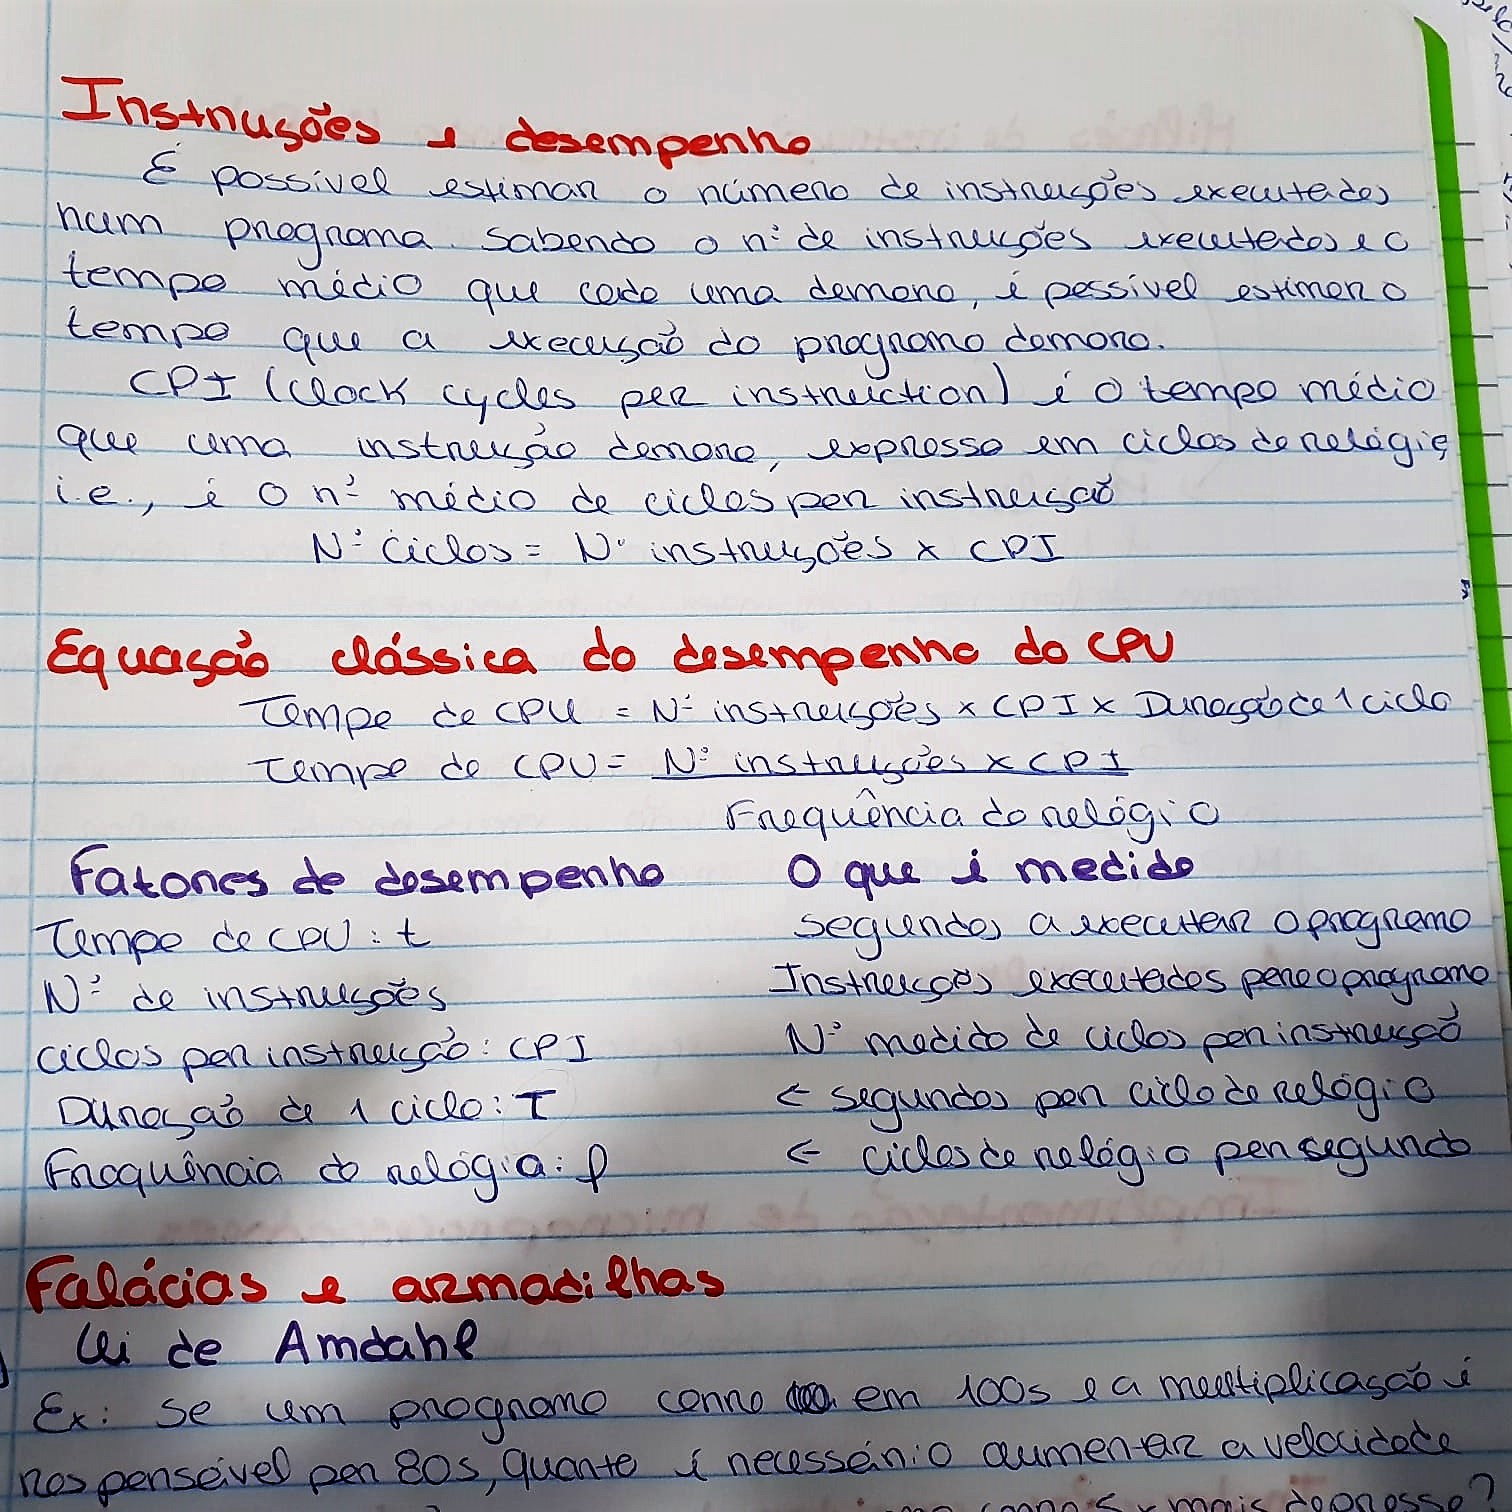 Instruções e desempenho
É possível estimar o número de instruções executadas
num programa. Sabendo o nº de instruções executadas e o
tempo médio que cada uma demora, é possível estimar o
tempo que a execução do programa demora.
CPI (Clock cycles per instruction) é o tempo médio
que uma instrução demora, expresso em ciclos de relógio,
i.e., é o nº médio de ciclos por instrução
Nº ciclos = Nº instruções x CPI
Equação clássica do desempenho do CPU
Tempo de CPU = Nº instruções x CPI x Duração de 1 ciclo
Tempo de CPU = Nº instruções x CPI
Frequência do relógio
Fatores de desempenho O que é medido
Tempo de CPU: t Segundos a executar o programa
Nº de instruções Instruções executadas para o programa
Ciclos por instrução: CPI Nº medido de ciclos por instrução
Duração de 1 ciclo: T ← segundos por ciclo de relógio
Frequência do relógio: f ← ciclos de relógio por segundo
Falácias e armadilhas
Lei de Amdahl
Ex: Se um programa corre em 100s e a multiplicação é
responsável por 80s, quanto é necessário aumentar a velocidade
mais depressa?